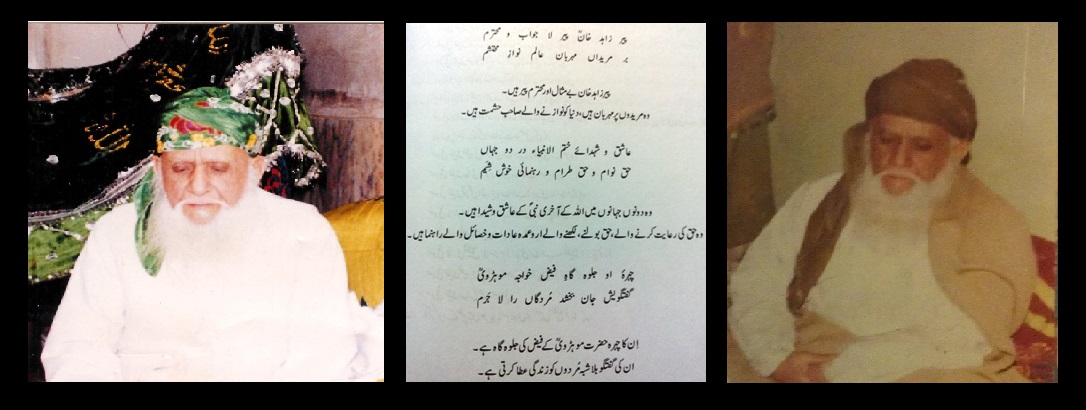 پیر زاہد خانؒ پیر لا جواب و محترم
بر مریداں مہربان عالم نواز محتشم
پیر زاہد خان بے مثال اور محترم پیر ہیں۔
وہ مریدوں پر مہربان ہیں، دنیا کو نوازنے والے صاحب حشمت ہیں۔
عاشق و شیدائے ختم الانبیاء در دو جہاں
حق نوام و حق طرام و رہنمائی خوش شیم
وہ دونوں جہانوں میں اللہ کے آخری نبیؐ کے عاشق و شیدا ہیں۔
وہ حق کی رعایت کرنے والے، حق بولنے، لکھنے والے اور عمدہ عادات و خصائل والے راہنما ہیں۔
چہرۂ او جلوہ گاہِ فیض خواجہ موہڑویؒ
گفتگویش جان بخشد مُردگاں را لا جَرَم
اِن کا چہرہ حضرت موہڑویؒ کے فیض کی جلوہ گاہ ہے۔
ان کی گفتگو بلاشبہ مُردوں کو زندگی عطا کرتی ہے۔